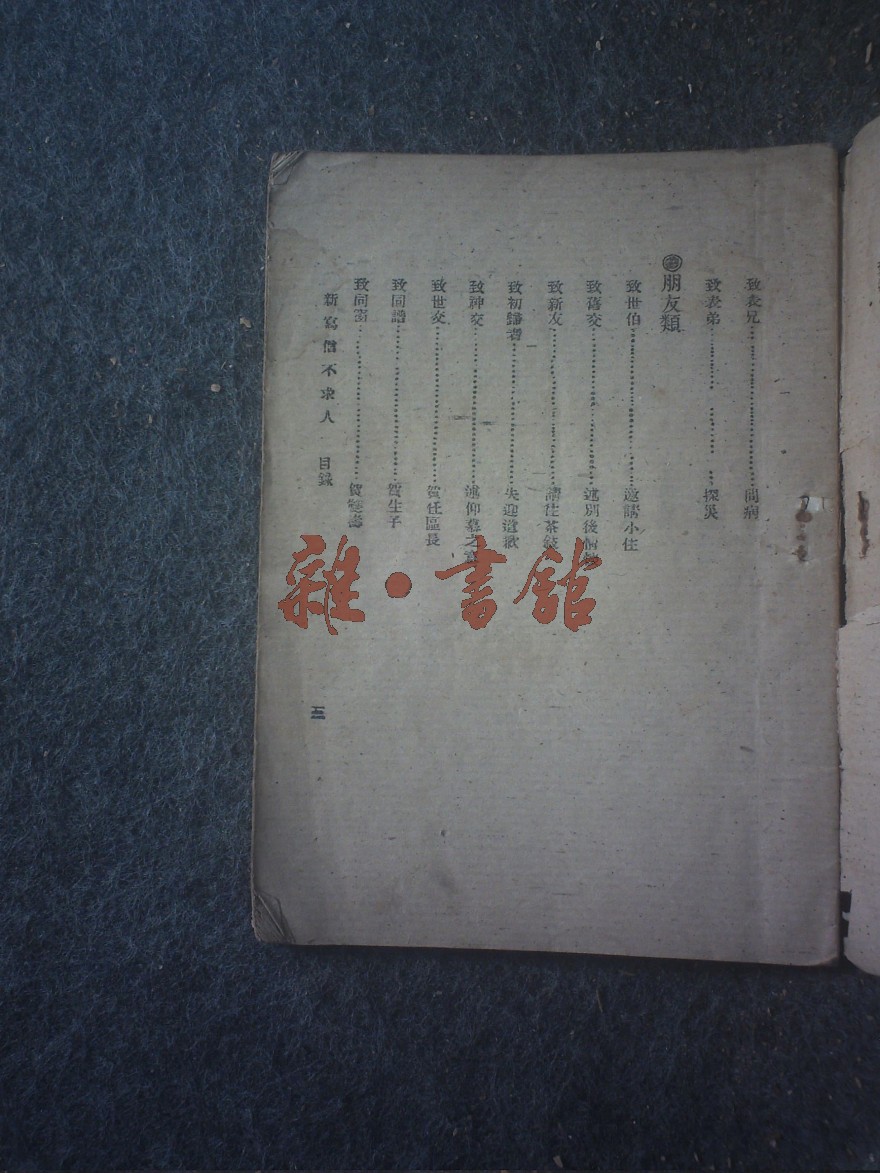 致表兄…………………………問病
致表弟…………………………探災
朋友類
致世伯…………………………邀請小住
致舊交…………………………述別後情
致新友…………………………請往茶敍
致初歸者………………………失迎道歉
致神交…………………………述仰慕之意
致世交…………………………賀任區長
致同譜…………………………賀生子
致同窗…………………………賀雙壽
新寫信不求人 目錄
三
雜·書館